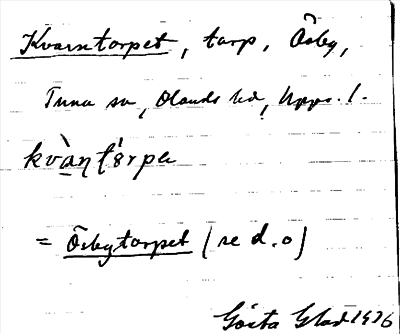 Kvarntorpet, torp, Ösby,
Tuna sn, Olands hd, Upps. l.
kvàṇt́ǝrpǝ
= Ösbytorpet (se d.o)
Gösta Glad 1916